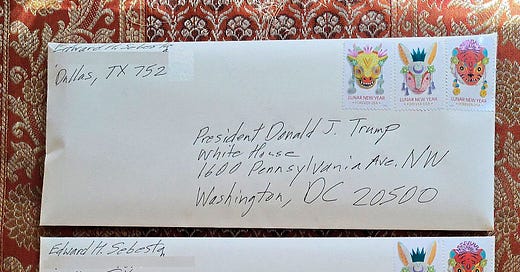 Edward H. Sebesta
Dallas, TX 752
LUNAR NEW YEAR
FOREVER USA
LUNAR NEW YEAR
FOREVER USA
LUNAR NEW YEAR
FOREVER USA
President Donald J. Trump
White House
1600 Pennsylvania Ave. NW
Washington, DC 20500
Edward H. Sebesta